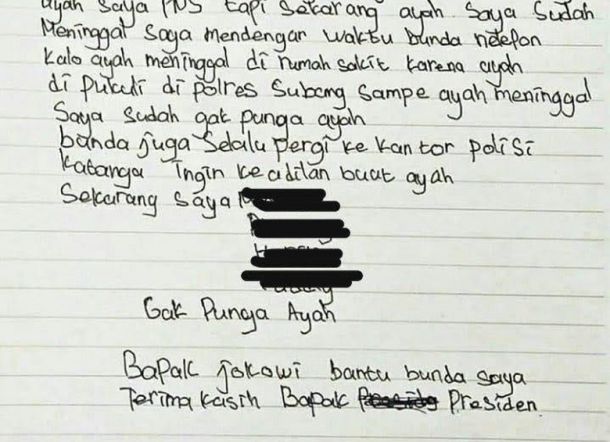 ayah saya PNS tapi Sekarang ayah Saya Sudah
Meninggal Saya mendengar waktu bunda nelefon
kalo ayah meninggal di rumah sakit karena ayah
di Pukuli di polres Subang Sampe ayah meninggal
Saya Sudah gak punga ayah
bunda juga Selalu pergi ke kantor polisi
katanga Ingin keadilan buat ayah
Sekarang Saya
Gak Punga Ayah
Bapak jokowi bantu bunda saya
Terima kasih Bapak Presiden.